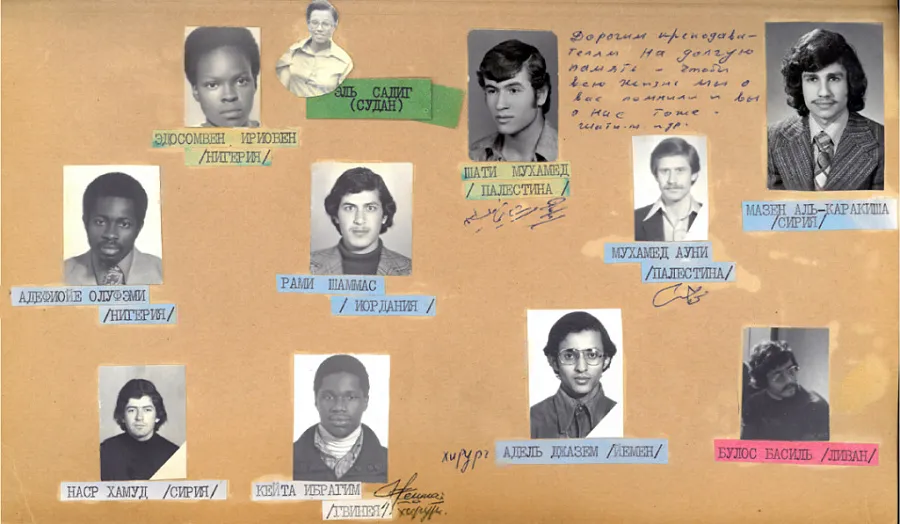 ЭДОСОМВЕН ИРИОВЕН
/НИГЕРИЯ/
ЭЛЬ САДИГ
(СУДАН)
ШАТИ МУХАМЕД
/ ПАЛЕСТИНА /
Дорогим преподава-
телям на долгую
память – чтобы
всю жизнь мы о
вас помнили и вы
о нас тоже.
МАЗЕН АЛЬ-КАРАКИША
/СИРИЯ/
АДЕФИОЙЕ ОЛУФЭМИ
/НИГЕРИЯ/
РАМИ ШАММАС
/ ИОРДАНИЯ /
МУХАМЕД АУНИ
/ПАЛЕСТИНА/
НАСР ХАМУД /СИРИЯ/
КЕЙТА ИБРАГИМ
/ГВИНЕЯ/
хирург
хирург АДЕЛЬ ДЖАЗЕМ /ЙЕМЕН/
БУЛОС БАСИЛЬ /ЛИВАН/